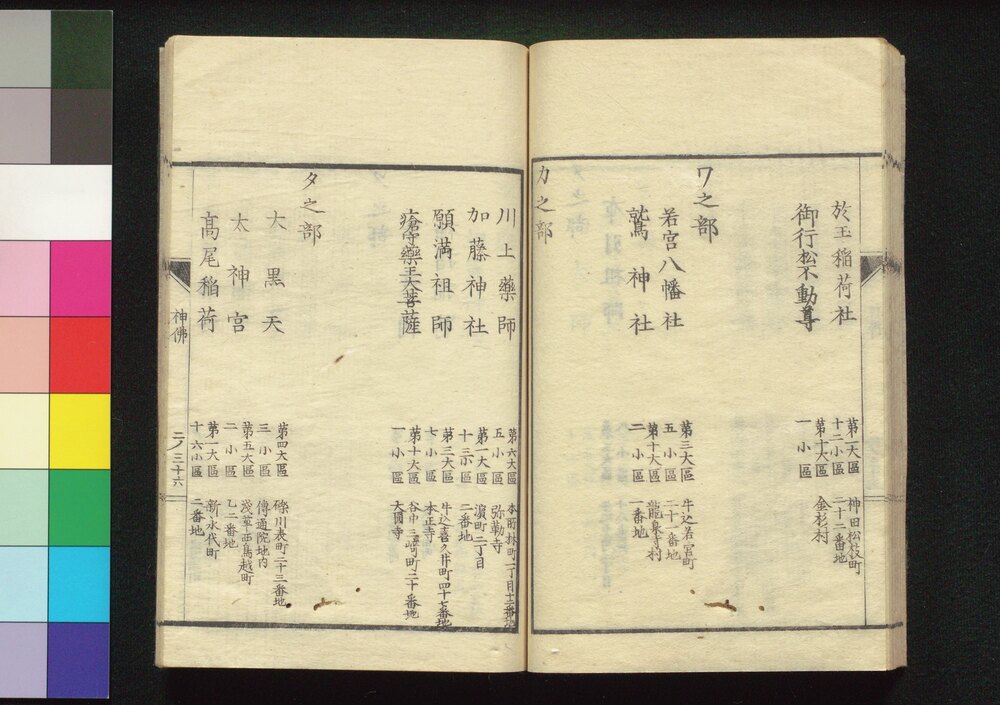 於玉稲荷社
第一大區
十二小區
神田松枝町
二十二番地
御行松不動尊
第十大區
一小區
金杉村
ワ之部
若宮八幡社
第三大區
五小區
牛込若宮町
二十一番地
鷲神社
第十大區
二小區
龍泉寺村
一番地
カ之部
川上藥師
第六大區
五小區
本所林町二丁目十二番地
弥勒寺
加藤神社
第一大區
十三小區
濵町二丁目
二番地
願満祖師
第三大區
七小區
牛込喜久井町四十七番地
本正寺
瘡守藥王大菩薩
第十大區
一小區
谷中三﨑町二十番地
大圓寺
タ之部
大黒天
第四大區
三小區
礫川表町二十三番地
傳通院地内
太神宮
第五大區
二小區
淺草西鳥越町
乙二番地
髙尾稲荷
第一大區
十六小區
新永代町
二番地
神佛
二ノ三十六